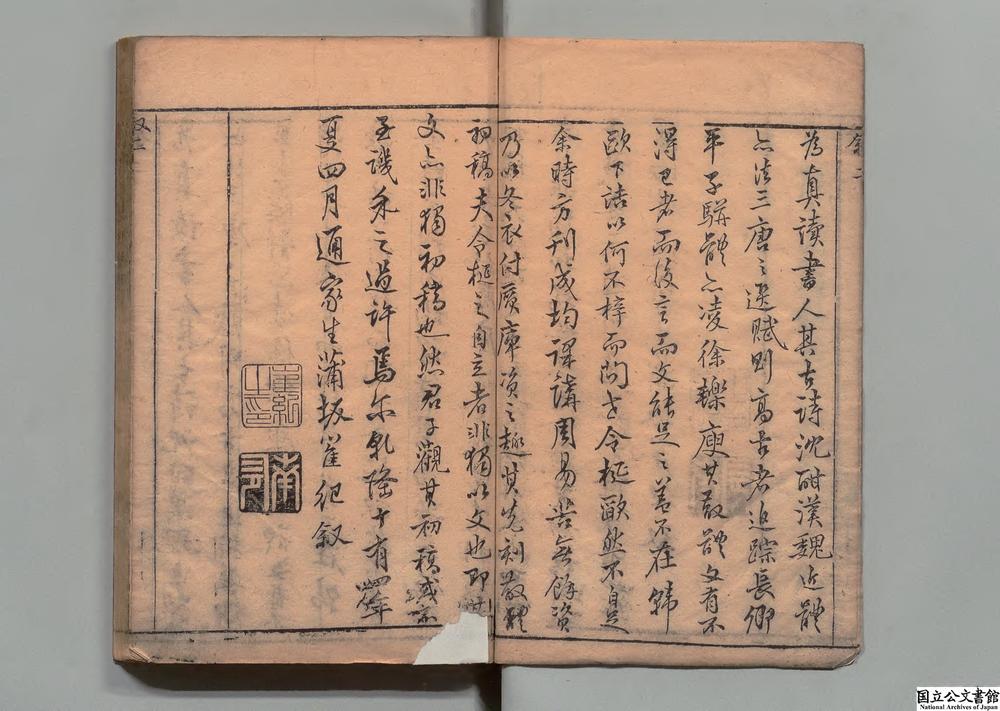 為真讀書人其古詩沈酣漢魏近體
亦法三唐之選賦則高者追踪長卿
平子駢體亦凌徐轢庾其散體文有不
得已者而後言而文能足之蓋不在韓
歐下詰以何不梓而問世令梴歐然不自足
余時方刊成均課講周易苦無餘資
乃以冬衣付質庫資之趣其先刻散體
初稿夫令梴之自立者非獨以文也即
文亦非獨初稿也然君子觀其初稿或不
至譏余之過許焉尔乾隆十有四年
夏四月通家生蒲坂崔紀叙
崔紀之印
南有
叙二
国立公文書館
National Archives of Japan